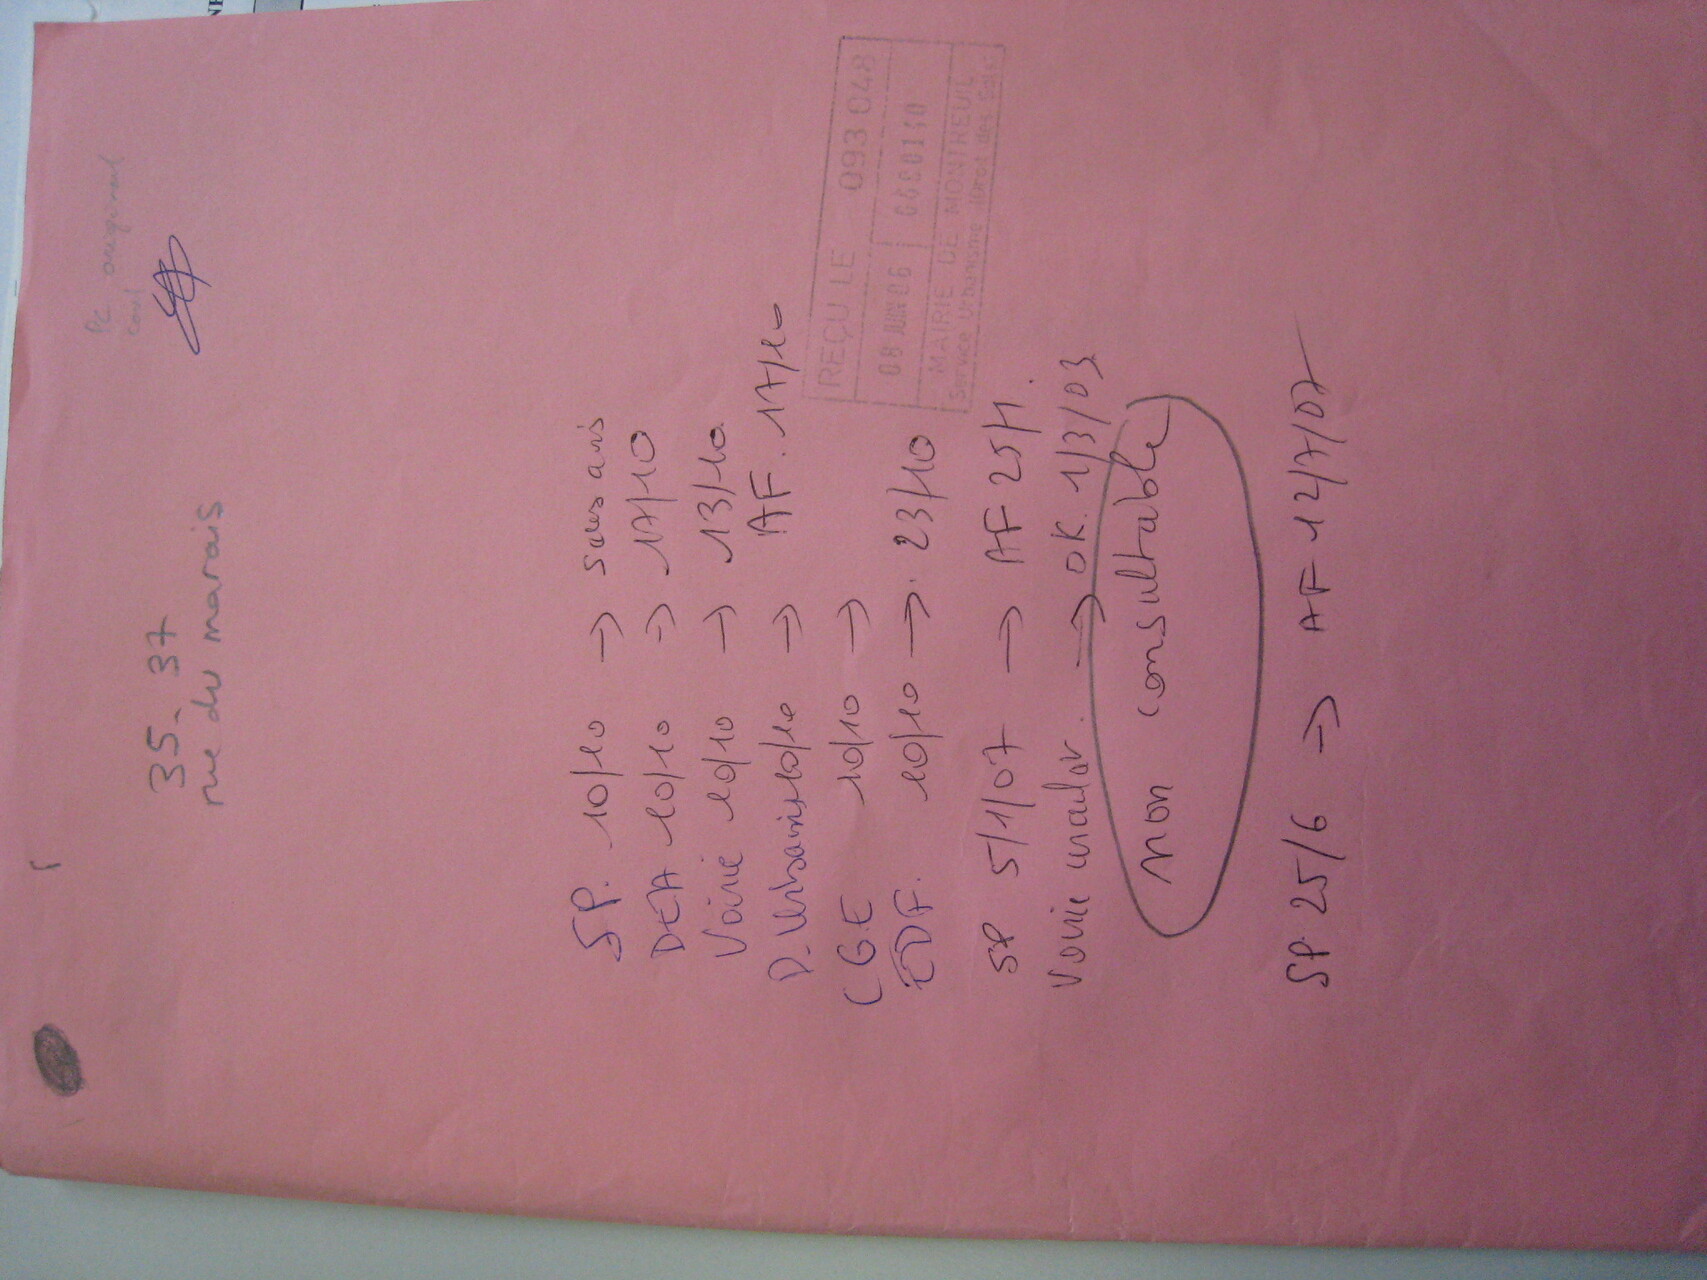 PC original
35-37
rue du marais
SP. 10/10 → sans avis
DEA 10/10 → 17/10
Voirie 10/10 → 13/10.
D. Urbain 10/10 → AF. 17/10
CGE 10/10 →
EDF. 10/10 →. 23/10
REÇU LE 093 048
08 JUIN 06 06E0110
MAIRIE DE MONTREUIL
Service Urbanisme Droit des Sols
SP 5/1/07 → AF 25/1.
Voirie → OK. 1/3/03
non consultable
SP. 25/6 → AF 12/7/07